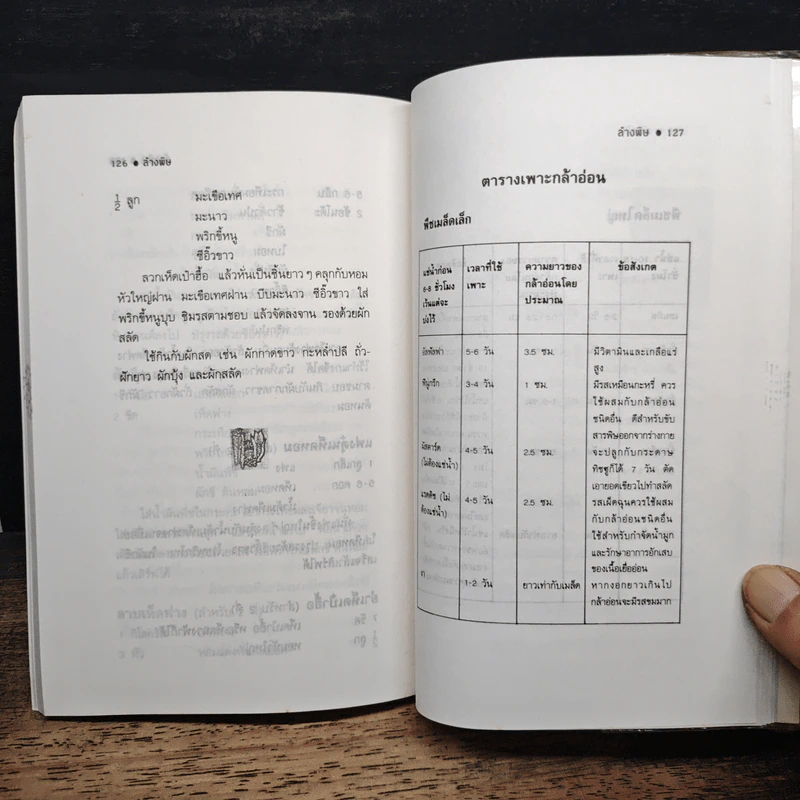 126 ● ล้างพิษ
1/2 ลูก มะเขือเทศ
มะนาว
พริกขี้หนู
ซีอิ๊วขาว
ลวกเห็ดเป๋าฮื้อ แล้วหั่นเป็นชิ้นยาว ๆ คลุกกับหอม
หัวใหญ่ฝาน มะเขือเทศฝาน บีบมะนาว ซีอิ๊วขาว ใส่
พริกขี้หนูบุบ ชิมรสตามชอบ แล้วจัดลงจาน รองด้วยผัก
สลัด
ใช้กินกับผักสด เช่น ผักกาดขาว กะหล่ำปลี ถั่ว-
ฝักยาว ผักบุ้ง และผักสลัด
ล้างพิษ ● 127
ตารางเพาะกล้าอ่อน
พืชเมล็ดเล็ก
แช่น้ำก่อน เวลาที่ใช้ ความยาวของ ข้อสังเกต
6-8 ชั่วโมง เพาะ กล้าอ่อนโดย
เว้นแต่จะ ประมาณ
บ่งไว้
อัลฟัลฟา 5-6 วัน 3.5 ซม. มีวิตามินและเกลือแร่
สูง
ฟีนูกรีก 3-4 วัน 1 ซม. มีรสเหมือนกะหรี่ ควร
ใช้ผสมกับกล้าอ่อน
ชนิดอื่น ดีสำหรับขับ
สารพิษออกจากร่างกาย
มัสตาร์ด 4-5 วัน 2.5 ซม. จะปลูกกับกระดาษ
(ไม่ต้องแช่น้ำ) ทิชชูก็ได้ 7 วัน ตัด
เอายอดเขียวไปทำสลัด
แรดดิช (ไม่ 4-5 วัน 2.5 ซม. รสเผ็ดฉุนควรใช้ผสม
ต้องแช่น้ำ) กับกล้าอ่อนชนิดอื่น
ใช้สำหรับกำจัดน้ำมูก
และรักษาอาการอักเสบ
ของเนื้อเยื่ออ่อน
งา 1-2 วัน ยาวเท่ากับเมล็ด หากงอกยาวเกินไป
กล้าอ่อนจะมีรสขมมาก